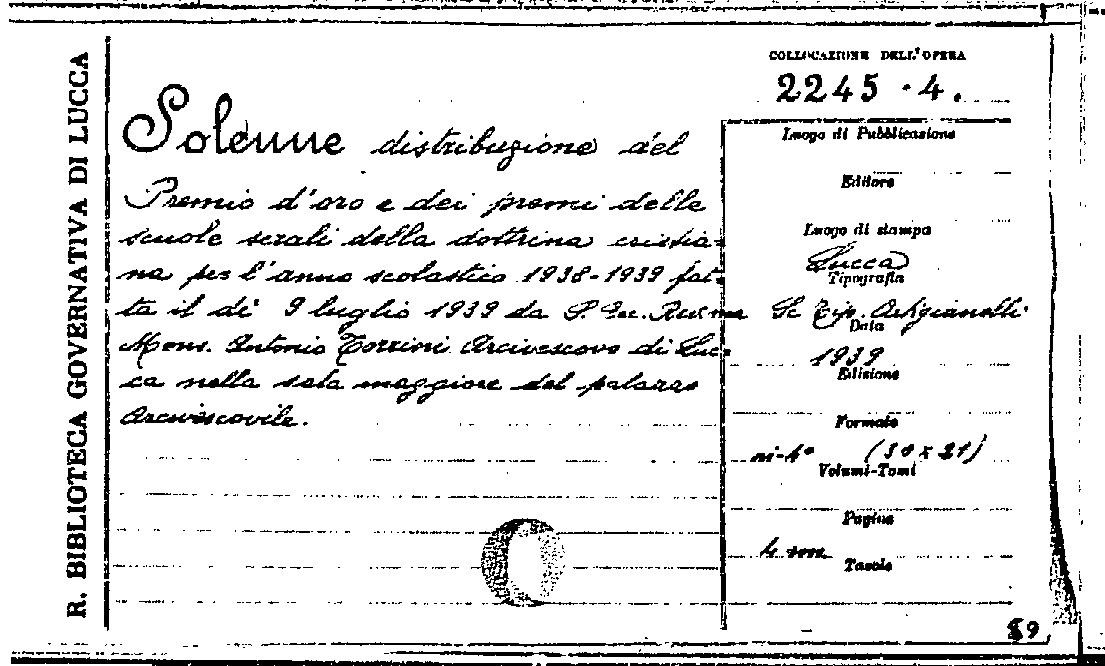 R. BIBLIOTECA GOVERNATIVA DI LUCCA
COLLOCAZIONE DELL'OPERA
2245 - 4.
Solenne distribuzione del
Premio d'oro e dei premi delle
scuole serali della dottrina cristia-
na per l'anno scolastico 1938-1939 fat-
ta il dì 9 luglio 1939 da S. Ecc. Rev.ma
Mons. Antonio Torrini Arcivescovo di Luc-
ca nella sala maggiore del palazzo
Arcivescovile.
Luogo di Pubblicazione
Editore
Luogo di stampa
Lucca
Tipografia
Sc. Tip. Artigianelli
Data
1939
Edizione
Formato
in-4° (30 x 21)
Volumi-Tomi
Pagine
4 nn
Tavole